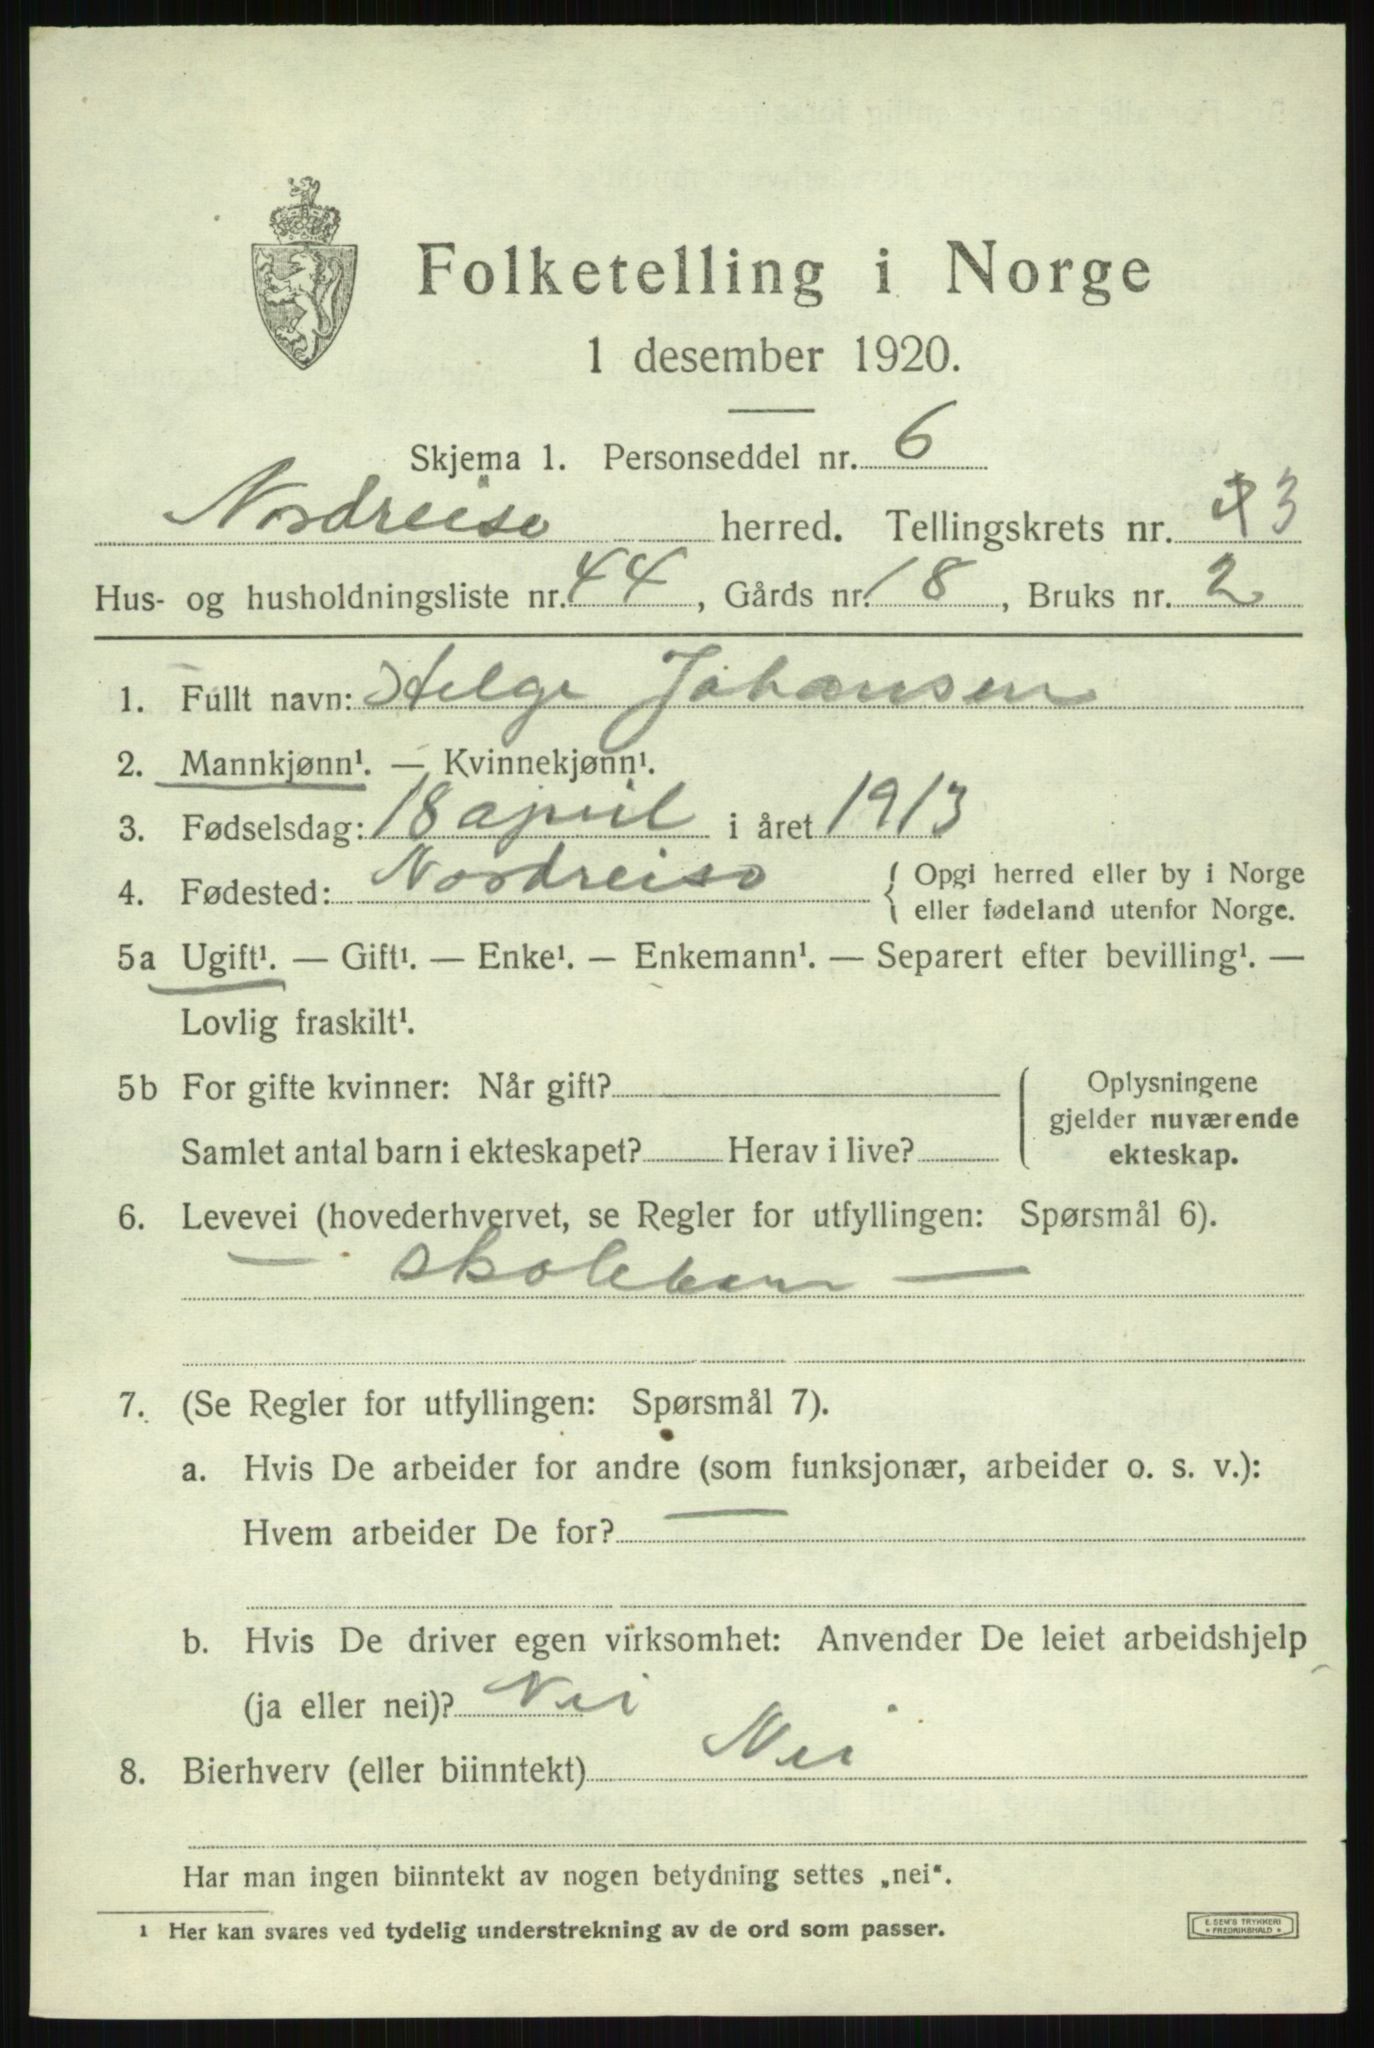 Folketelling i Norge
1 desember 1920.
Skjema 1. Personseddel nr. 6
Nordreisa herred. Tellingskrets nr. 3
Hus- og husholdningsliste nr. 44, Gårds nr. 18, Bruks nr. 2
1. Fullt navn: Helge Johansen
2. Mannkjønn¹. — Kvinnekjønn¹.
3. Fødselsdag: 18 april i året 1913
4. Fødested: Nordreisa { Opgi herred eller by i Norge
eller fødeland utenfor Norge.
5a Ugift¹. — Gift¹. — Enke¹. — Enkemann¹. — Separert efter bevilling¹. —
Lovlig fraskilt¹.
5b For gifte kvinner: Når gift? Oplysningene
gjelder nuværende
Samlet antal barn i ekteskapet? Herav i live? ekteskap.
6. Levevei (hovederhvervet, se Regler for utfyllingen: Spørsmål 6).
— skolebarn —
7. (Se Regler for utfyllingen: Spørsmål 7).
a. Hvis De arbeider for andre (som funksjonær, arbeider o. s. v.):
Hvem arbeider De for? —
b. Hvis De driver egen virksomhet: Anvender De leiet arbeidshjelp
(ja eller nei)? Nei
8. Bierhverv (eller biinntekt) Nei
Har man ingen biinntekt av nogen betydning settes „nei“.
¹ Her kan svares ved tydelig understrekning av de ord som passer.
E. SEM'S TRYKKERI
* FREDRIKSHALD *